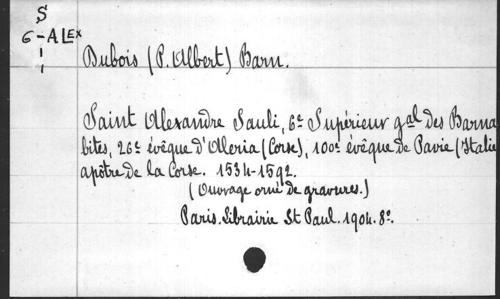 S
6-ALEX
1
1
Dubois (P. Albert) Barn.
Saint Alexandre Sauli, 6e Supérieur gal des Barna
bites, 26e évêque d'Alleria (Corse), 100e évêque de Pavie (Italie
apôtre de la Corse. 1534-1592.
(Ouvrage orné de gravures.)
Paris. Librairie St Paul. 1904. 8o.